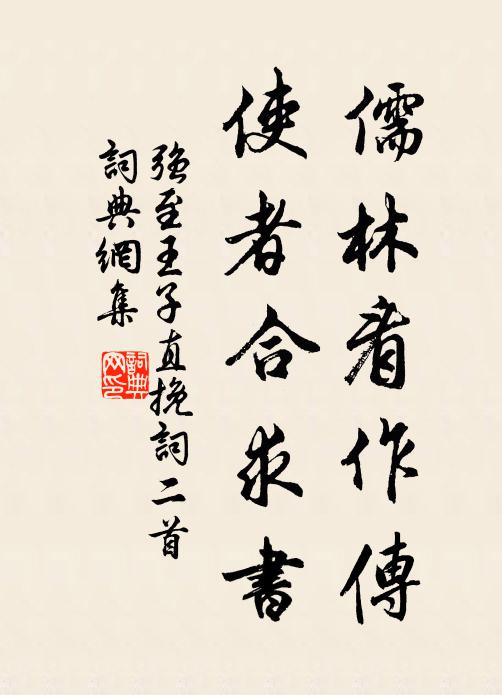 儒林看作傳
使者合求書
強至王子直挽詞二首
詞典網集
詞典網印